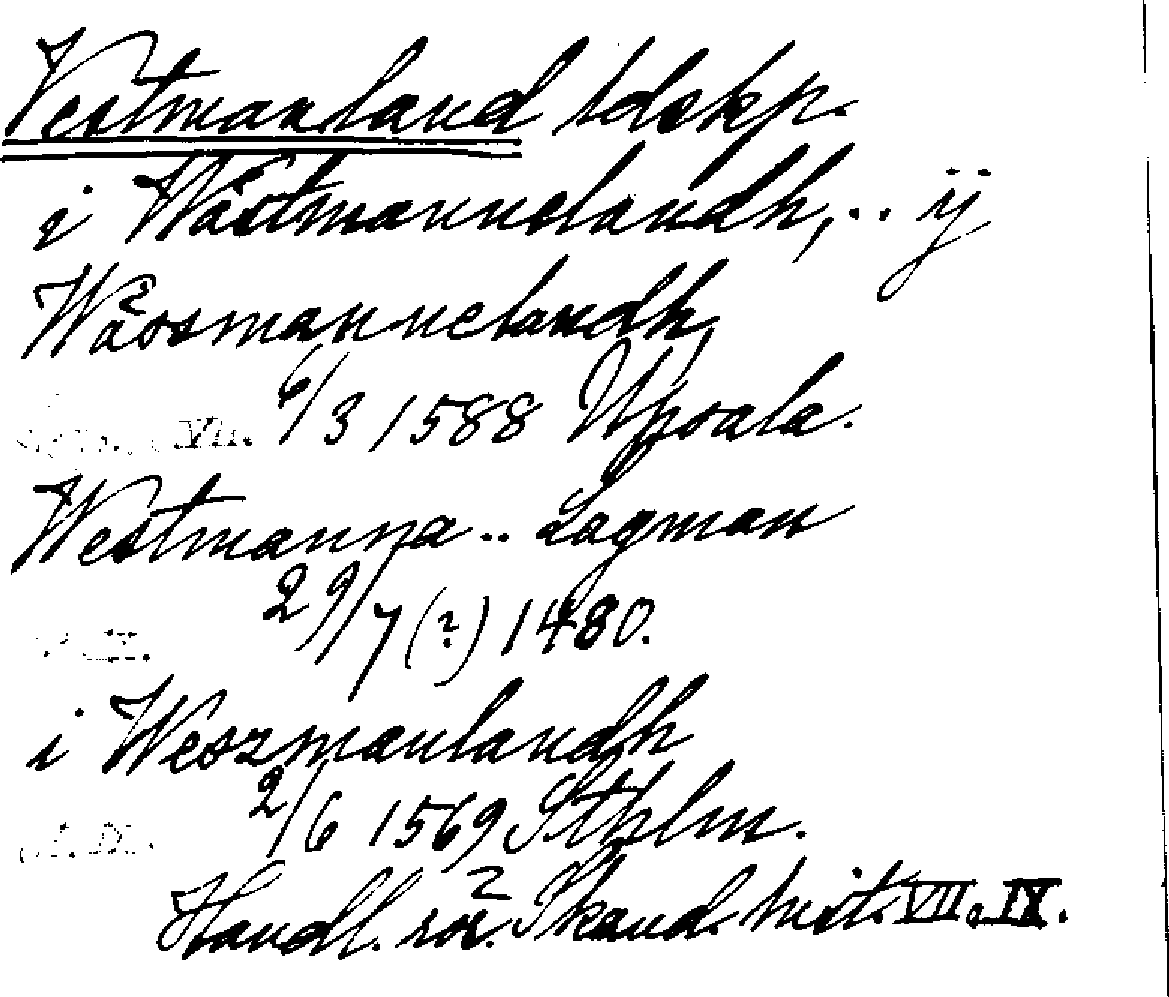 Vestmanland ldskp.
i Wästmannelandh, .. ij
Wässmannelandh,
6/3 1588 Upsala.
Westmanna .. Lagman
29/7 (?) 1480.
i Weszmanlandh
2/6 1569 Sthlm.
Handl. rör. Skand. hist. VII. IX.